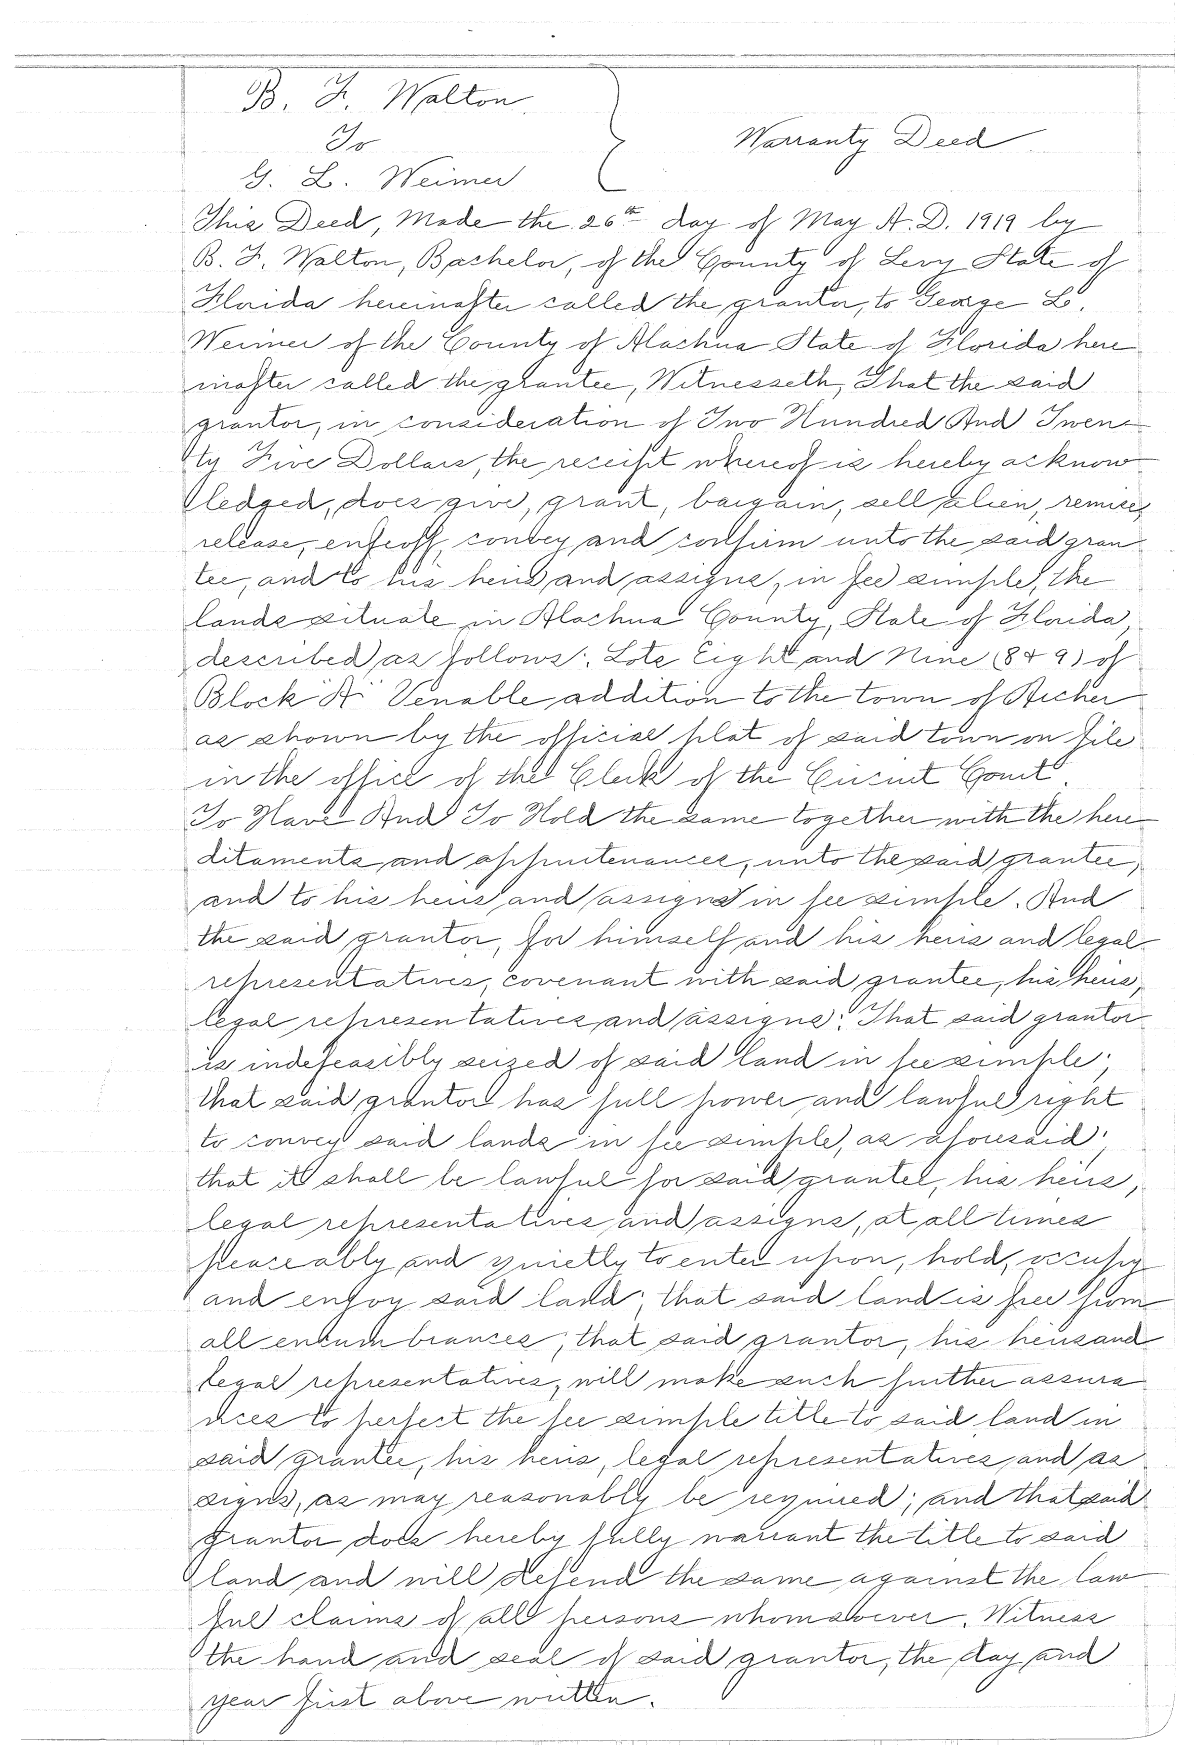 B. F. Walton
To
Warranty Deed
G. L. Weimer
This Deed, Made the 26th day of May A.D. 1919 by
B. F. Walton, Bachelor, of the County of Levy State of
Florida hereinafter called the grantor, to George L.
Weimer of the County of Alachua State of Florida here
inafter called the grantee, Witnesseth, That the said
grantor, in consideration of Two Hundred And Twen-
ty Five Dollars, the receipt whereof is hereby acknow
ledged, does give, grant, bargain, sell alien, remise,
release, enfeoff, convey and confirm unto the said gran
tee, and to his heirs and assigns, in fee simple, the
lands situate in Alachua County, State of Florida,
described as follows: Lots Eight and Nine (8 & 9) of
Block "A" Venable addition to the town of Archer
as shown by the official plat of said town on file
in the office of the Clerk of the Circuit Court.
To Have And To Hold the same together with the here
ditaments and appurtenances, unto the said grantee,
and to his heirs and assigns in fee simple. And
the said grantor, for himself and his heirs and legal
representatives, covenant with said grantee, his heirs,
legal representatives and assigns: That said grantor
is indefeasibly seized of said land in fee simple;
that said grantor has full power and lawful right
to convey said lands in fee simple, as aforesaid;
that it shall be lawful for said grantee, his heirs,
legal representatives and assigns, at all times
peaceably and quietly to enter upon, hold, occupy
and enjoy said land; that said land is free from
all encumbrances; that said grantor, his heirs and
legal representatives, will make such further assura
nces to perfect the fee simple title to said land in
said grantee, his heirs, legal representatives and as
signs, as may reasonably be required; and that said
grantor does hereby fully warrant the title to said
land and will defend the same against the law
ful claims of all persons whomsoever. Witness
the hand and seal of said grantor, the day and
year first above written.